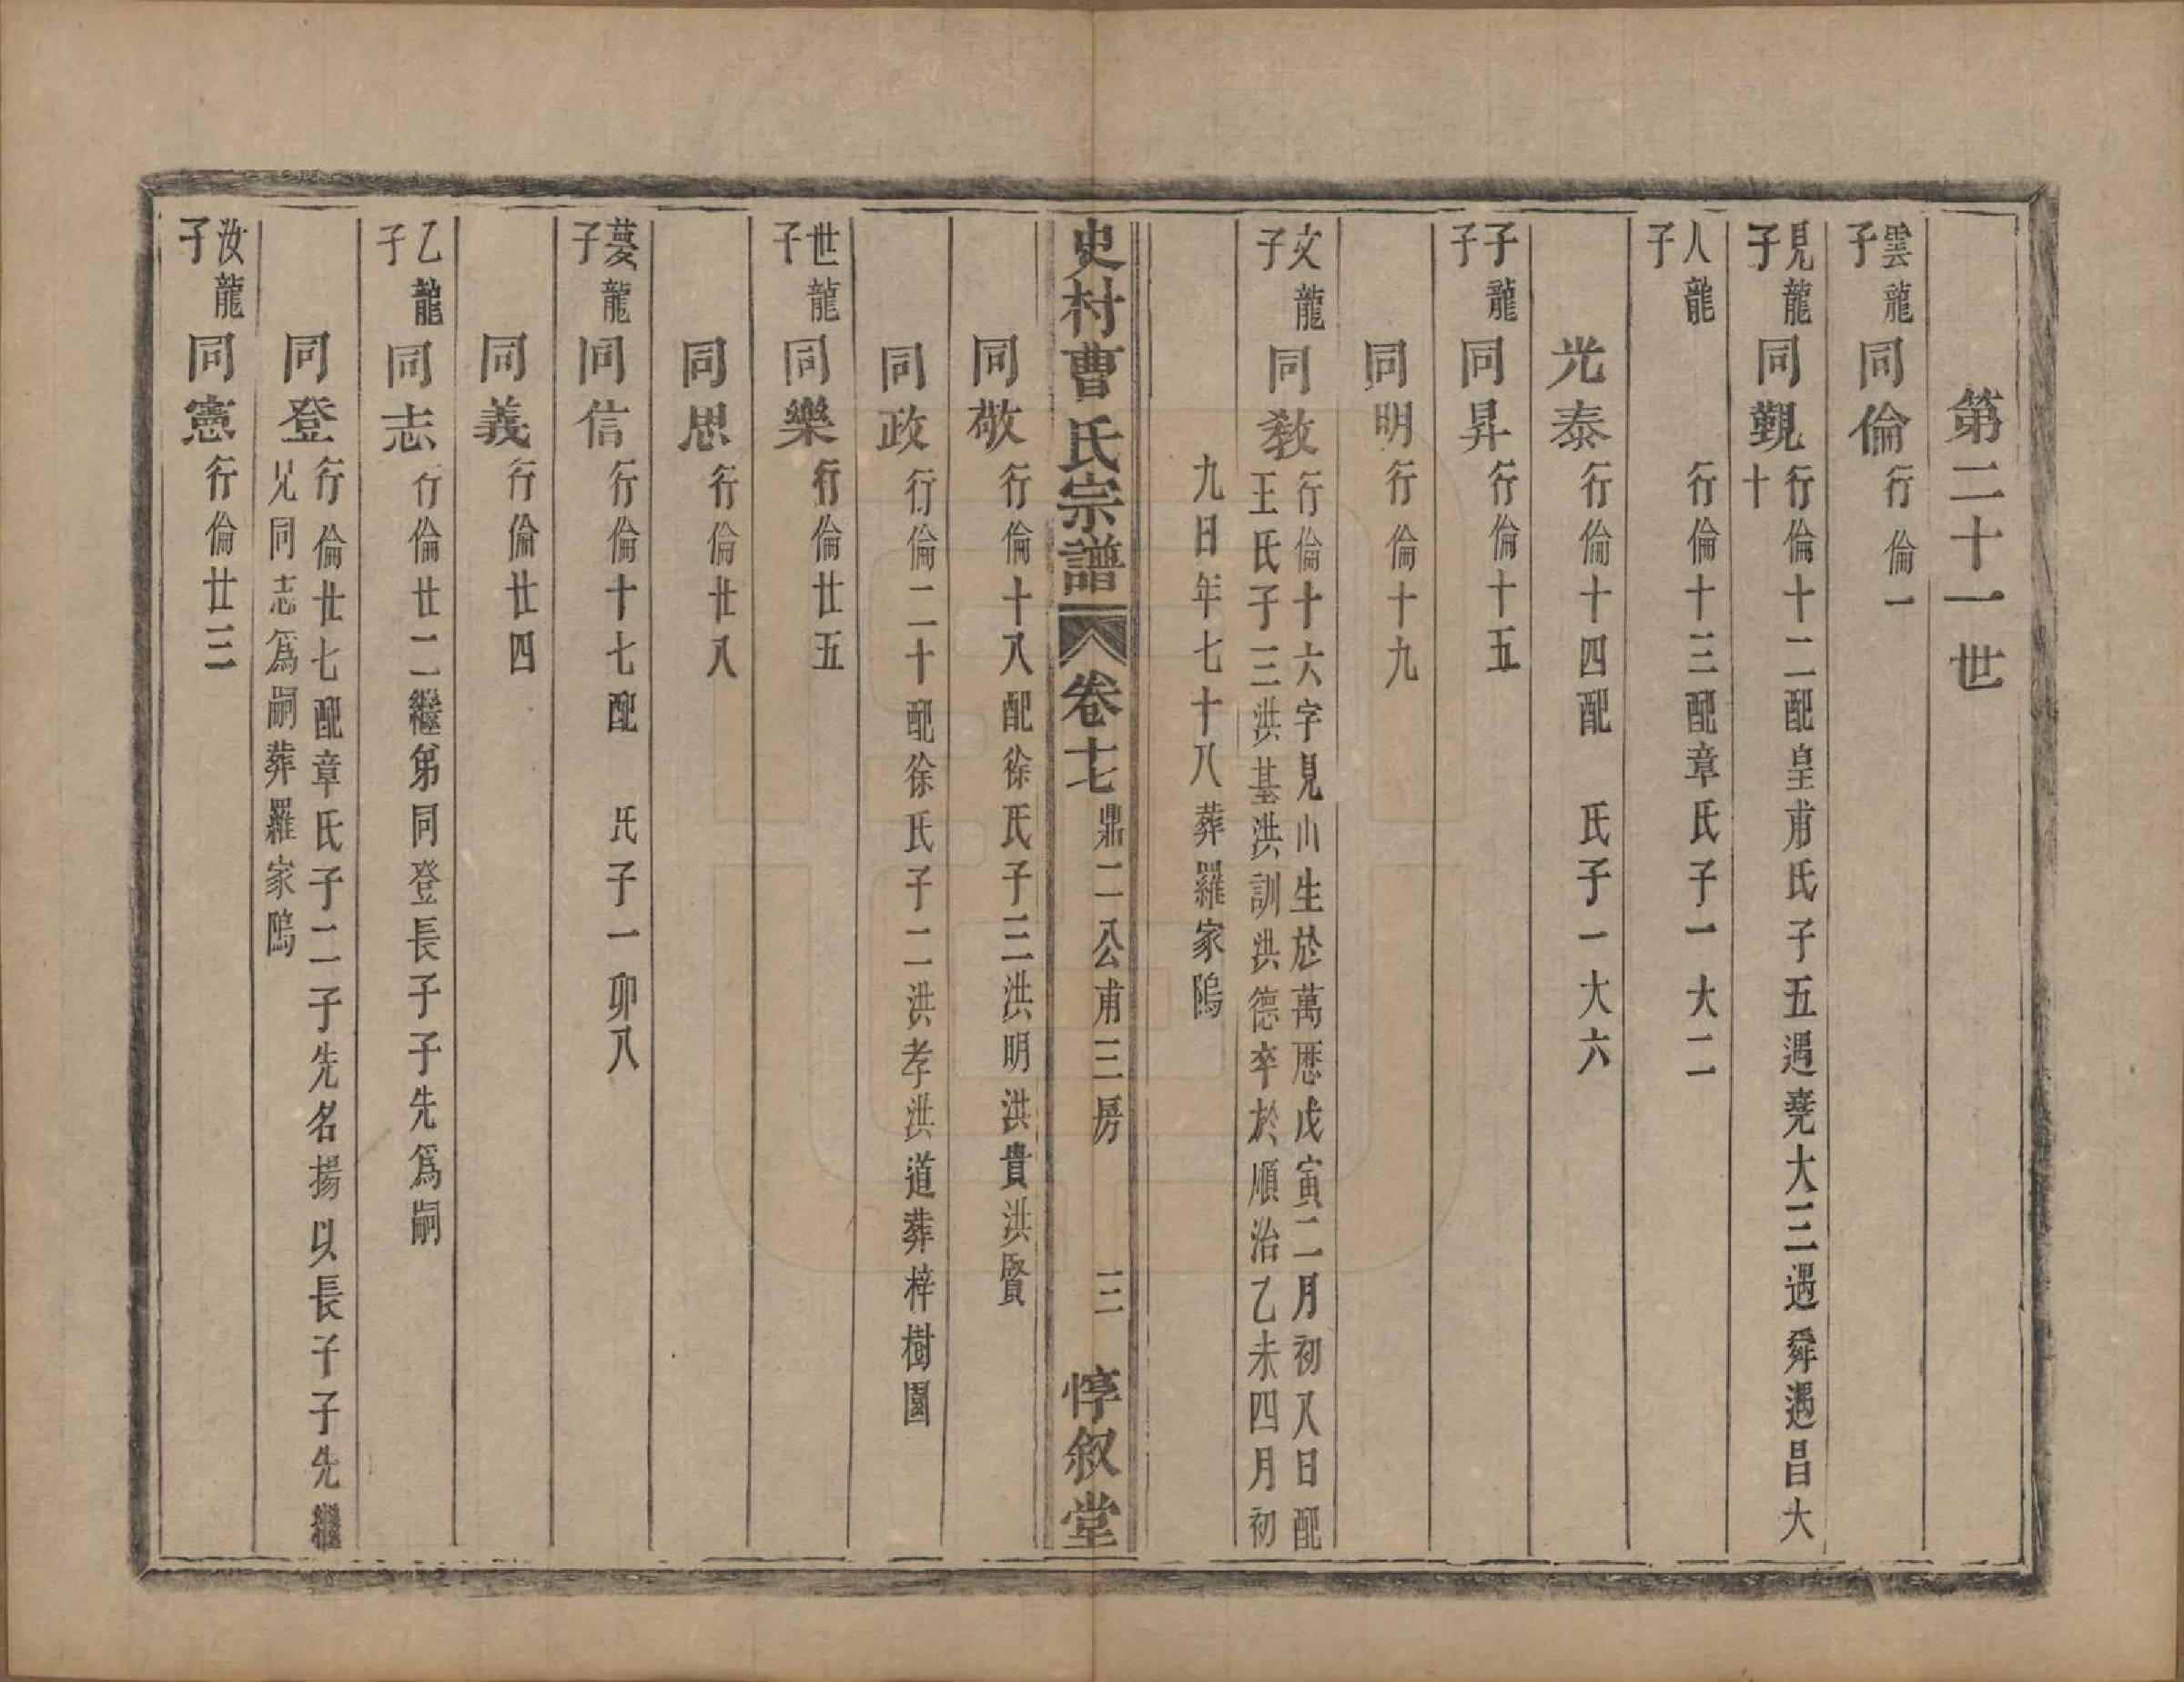 第二十一世
雲龍子
同倫行倫一
見龍子
同覲行倫十二配皇甫氏子五遇堯大三遇舜遇昌大
十
人龍子
行倫十三配章氏子一大二
光泰行倫十四配　氏子一大六
子龍子
同昇行倫十五
同明行倫十九
文龍子
同敎行倫十六字見山生於萬歷戊寅二月初八日配
王氏子三洪基洪訓洪德卒於順治乙未四月初
九日年七十八葬羅家隖
史村曹氏宗譜　卷十七　鼎二公甫三房　三　惇叙堂
同敬行倫十八配徐氏子三洪明洪貴洪賢
同政行倫二十配徐氏子二洪孝洪道葬梓樹園
世龍子
同樂行倫廿五
同思行倫廿八
夢龍子
同信行倫十七配　氏子一卯八
同義行倫廿四
乙龍子
同志行倫廿二繼弟同登長子子先爲嗣
同登行倫廿七配章氏子二子先名揚以長子子先繼
兄同志爲嗣葬羅家隖
汝龍子
同憲行倫廿三